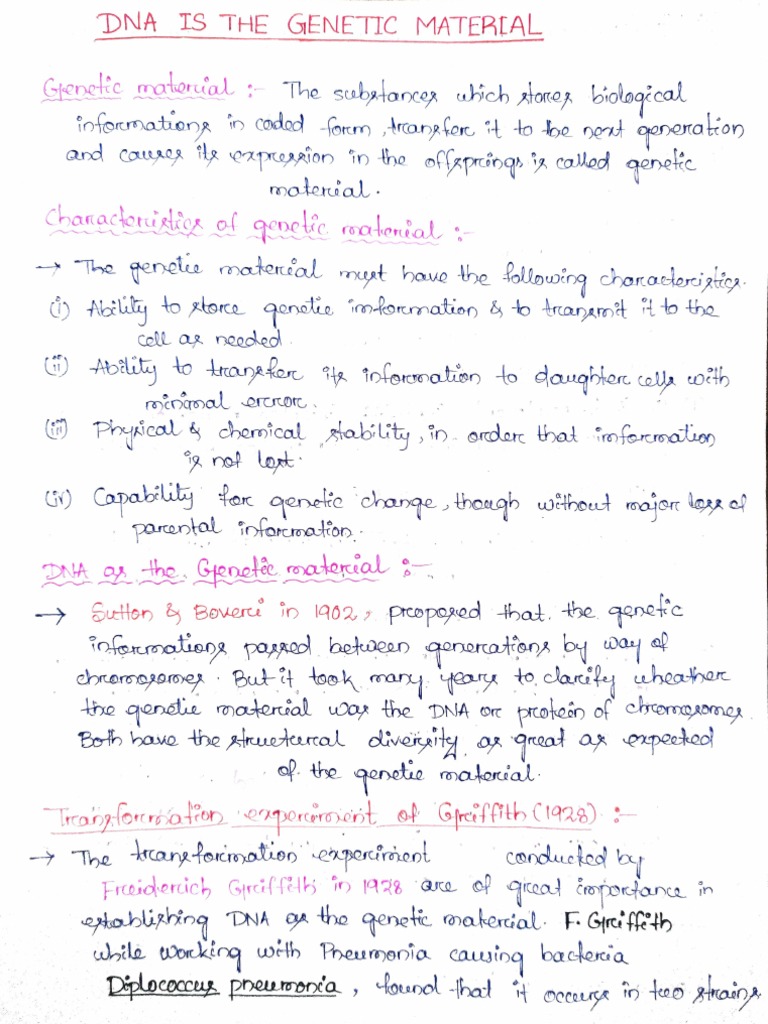 DNA IS THE GENETIC MATERIAL
Genetic material :- The substances which stores biological
informations in coded form, transfer it to the next generation
and causes its expression in the offsprings is called genetic
material.
Characteristics of genetic material :-
→ The genetic material must have the following characteristics.
(i) Ability to store genetic information & to transmit it to the
cell as needed.
(ii) Ability to transfer its information to daughter cells with
minimal error.
(iii) Physical & chemical stability, in order that information
is not lost.
(iv) Capability for genetic change, though without major loss of
parental information.
DNA as the Genetic material :-
→ Sutton & Boveri in 1902, proposed that the genetic
informations passed between generations by way of
chromosomes. But it took many years to clarify wheather
the genetic material was the DNA or protein of chromosomes.
Both have the structural diversity as great as expected
of the genetic material.
Transformation experiment of Griffith (1928) :-
→ The transformation experiment conducted by
Freiderich Griffith in 1928 are of great importance in
establishing DNA as the genetic material. F. Griffith
while working with Pneumonia causing bacteria
Diplococcus pneumonia, found that it occurs in two strains